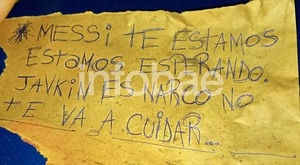 * MESSI TE ESTAMOS
ESTAMOS ESPERANDO.
JAVKIN ES NARCO NO
TE VA A CUIDAR...
infobae